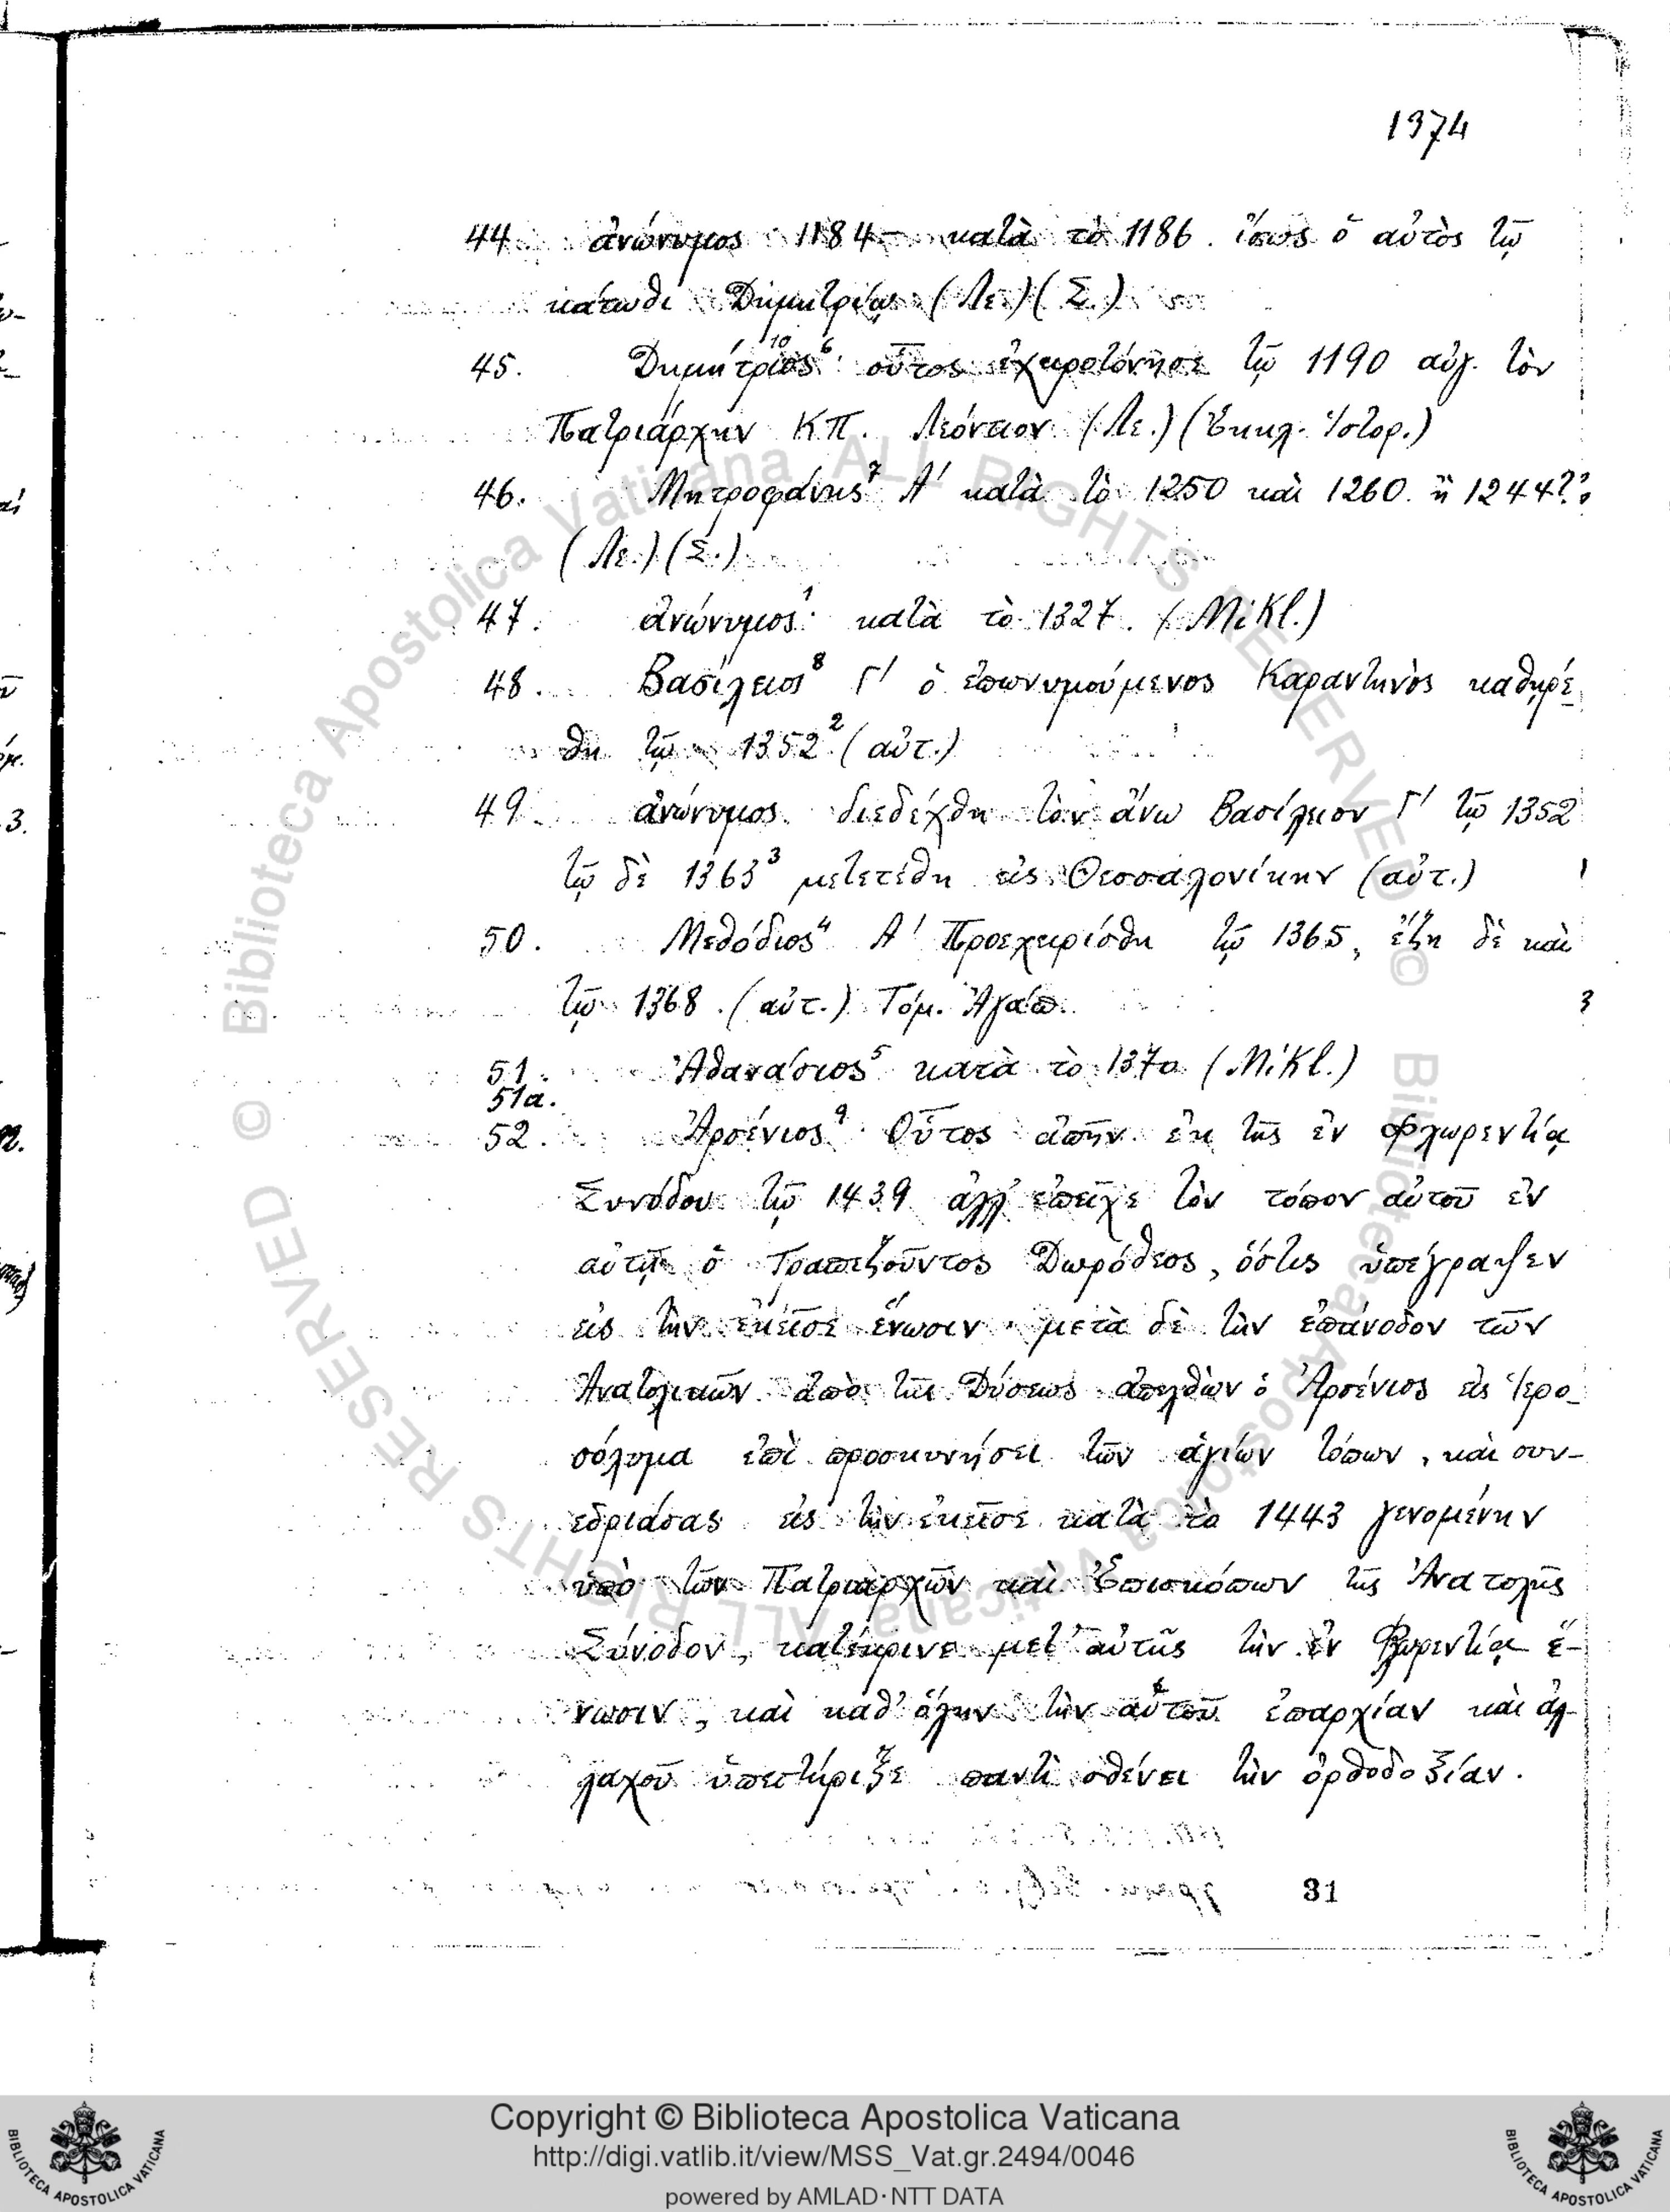 1374
44. ἀνώνυμος 1184 – κατὰ τὸ 1186. ἴσως ὁ αὐτὸς τῷ
κάτωθι Δημητρίῳ (Λε.) (Σ.)
45. Δημήτριος¹⁰ ⁶· οὗτος ἐχειροτόνησε τῷ 1190 αὐγ. τὸν
Πατριάρχην ΚΠ. Λεόντιον (Λε.) (Ἐκκλ. Ἱστορ.)
46. Μητροφάνης⁷ Α' κατὰ τὸ 1250 καὶ 1260. ἢ 1244??
(Λε.) (Σ.)
47. ἀνώνυμος¹· κατὰ τὸ 1327. (Mikl.)
48. Βασίλειος⁸ Γ' ὁ ἐπωνυμούμενος Καραντηνὸς καθῃρέ-
θη τῷ 1352² (αὐτ.)
49. ἀνώνυμος. διεδέχθη τὸν ἄνω Βασίλειον Γ' τῷ 1352
τῷ δὲ 1363³ μετετέθη εἰς Θεσσαλονίκην (αὐτ.)
50. Μεθόδιος⁴ Α' Προεχειρίσθη τῷ 1365, ἔζη δὲ καὶ
τῷ 1368. (αὐτ.) Τόμ. Ἀγάπ.
51. Ἀθανάσιος⁵ κατὰ τὸ 1370 (Mikl.)
51α.
52. Ἀρσένιος⁹· Οὗτος ἀπῆν ἐκ τῆς ἐν Φλωρεντίᾳ
Συνόδου τῷ 1439 ἀλλ' ἐπεῖχε τὸν τόπον αὐτοῦ ἐν
αὐτῇ ὁ Τραπεζοῦντος Δωρόθεος, ὅστις ὑπέγραψεν
εἰς τὴν ἐκεῖσε ἕνωσιν· μετὰ δὲ τὴν ἐπάνοδον τῶν
Ἀνατολικῶν ἀπὸ τῆς Δύσεως ἀπελθὼν ὁ Ἀρσένιος εἰς Ἱερο-
σόλυμα ἐπὶ προσκυνήσει τῶν ἁγίων τόπων, καὶ συν-
εδριάσας εἰς τὴν ἐκεῖσε κατὰ τὸ 1443 γενομένην
ὑπὸ τῶν Πατριαρχῶν καὶ Ἐπισκόπων τῆς Ἀνατολῆς
Σύνοδον, κατέκρινε μετ' αὐτῆς τὴν ἐν Φλωρεντίᾳ ἕ-
νωσιν, καὶ καθ' ὅλην τὴν αὐτοῦ ἐπαρχίαν καὶ ἀλ-
λαχοῦ ὑπεστήριξε παντὶ σθένει τὴν ὀρθοδοξίαν.
31
© Biblioteca Apostolica Vaticana ALL RIGHTS RESERVED
© Biblioteca Apostolica Vaticana ALL RIGHTS RESERVED
Copyright © Biblioteca Apostolica Vaticana
http://digi.vatlib.it/view/MSS_Vat.gr.2494/0046
powered by AMLAD·NTT DATA
BIBLIOTECA APOSTOLICA VATICANA
BIBLIOTECA APOSTOLICA VATICANA